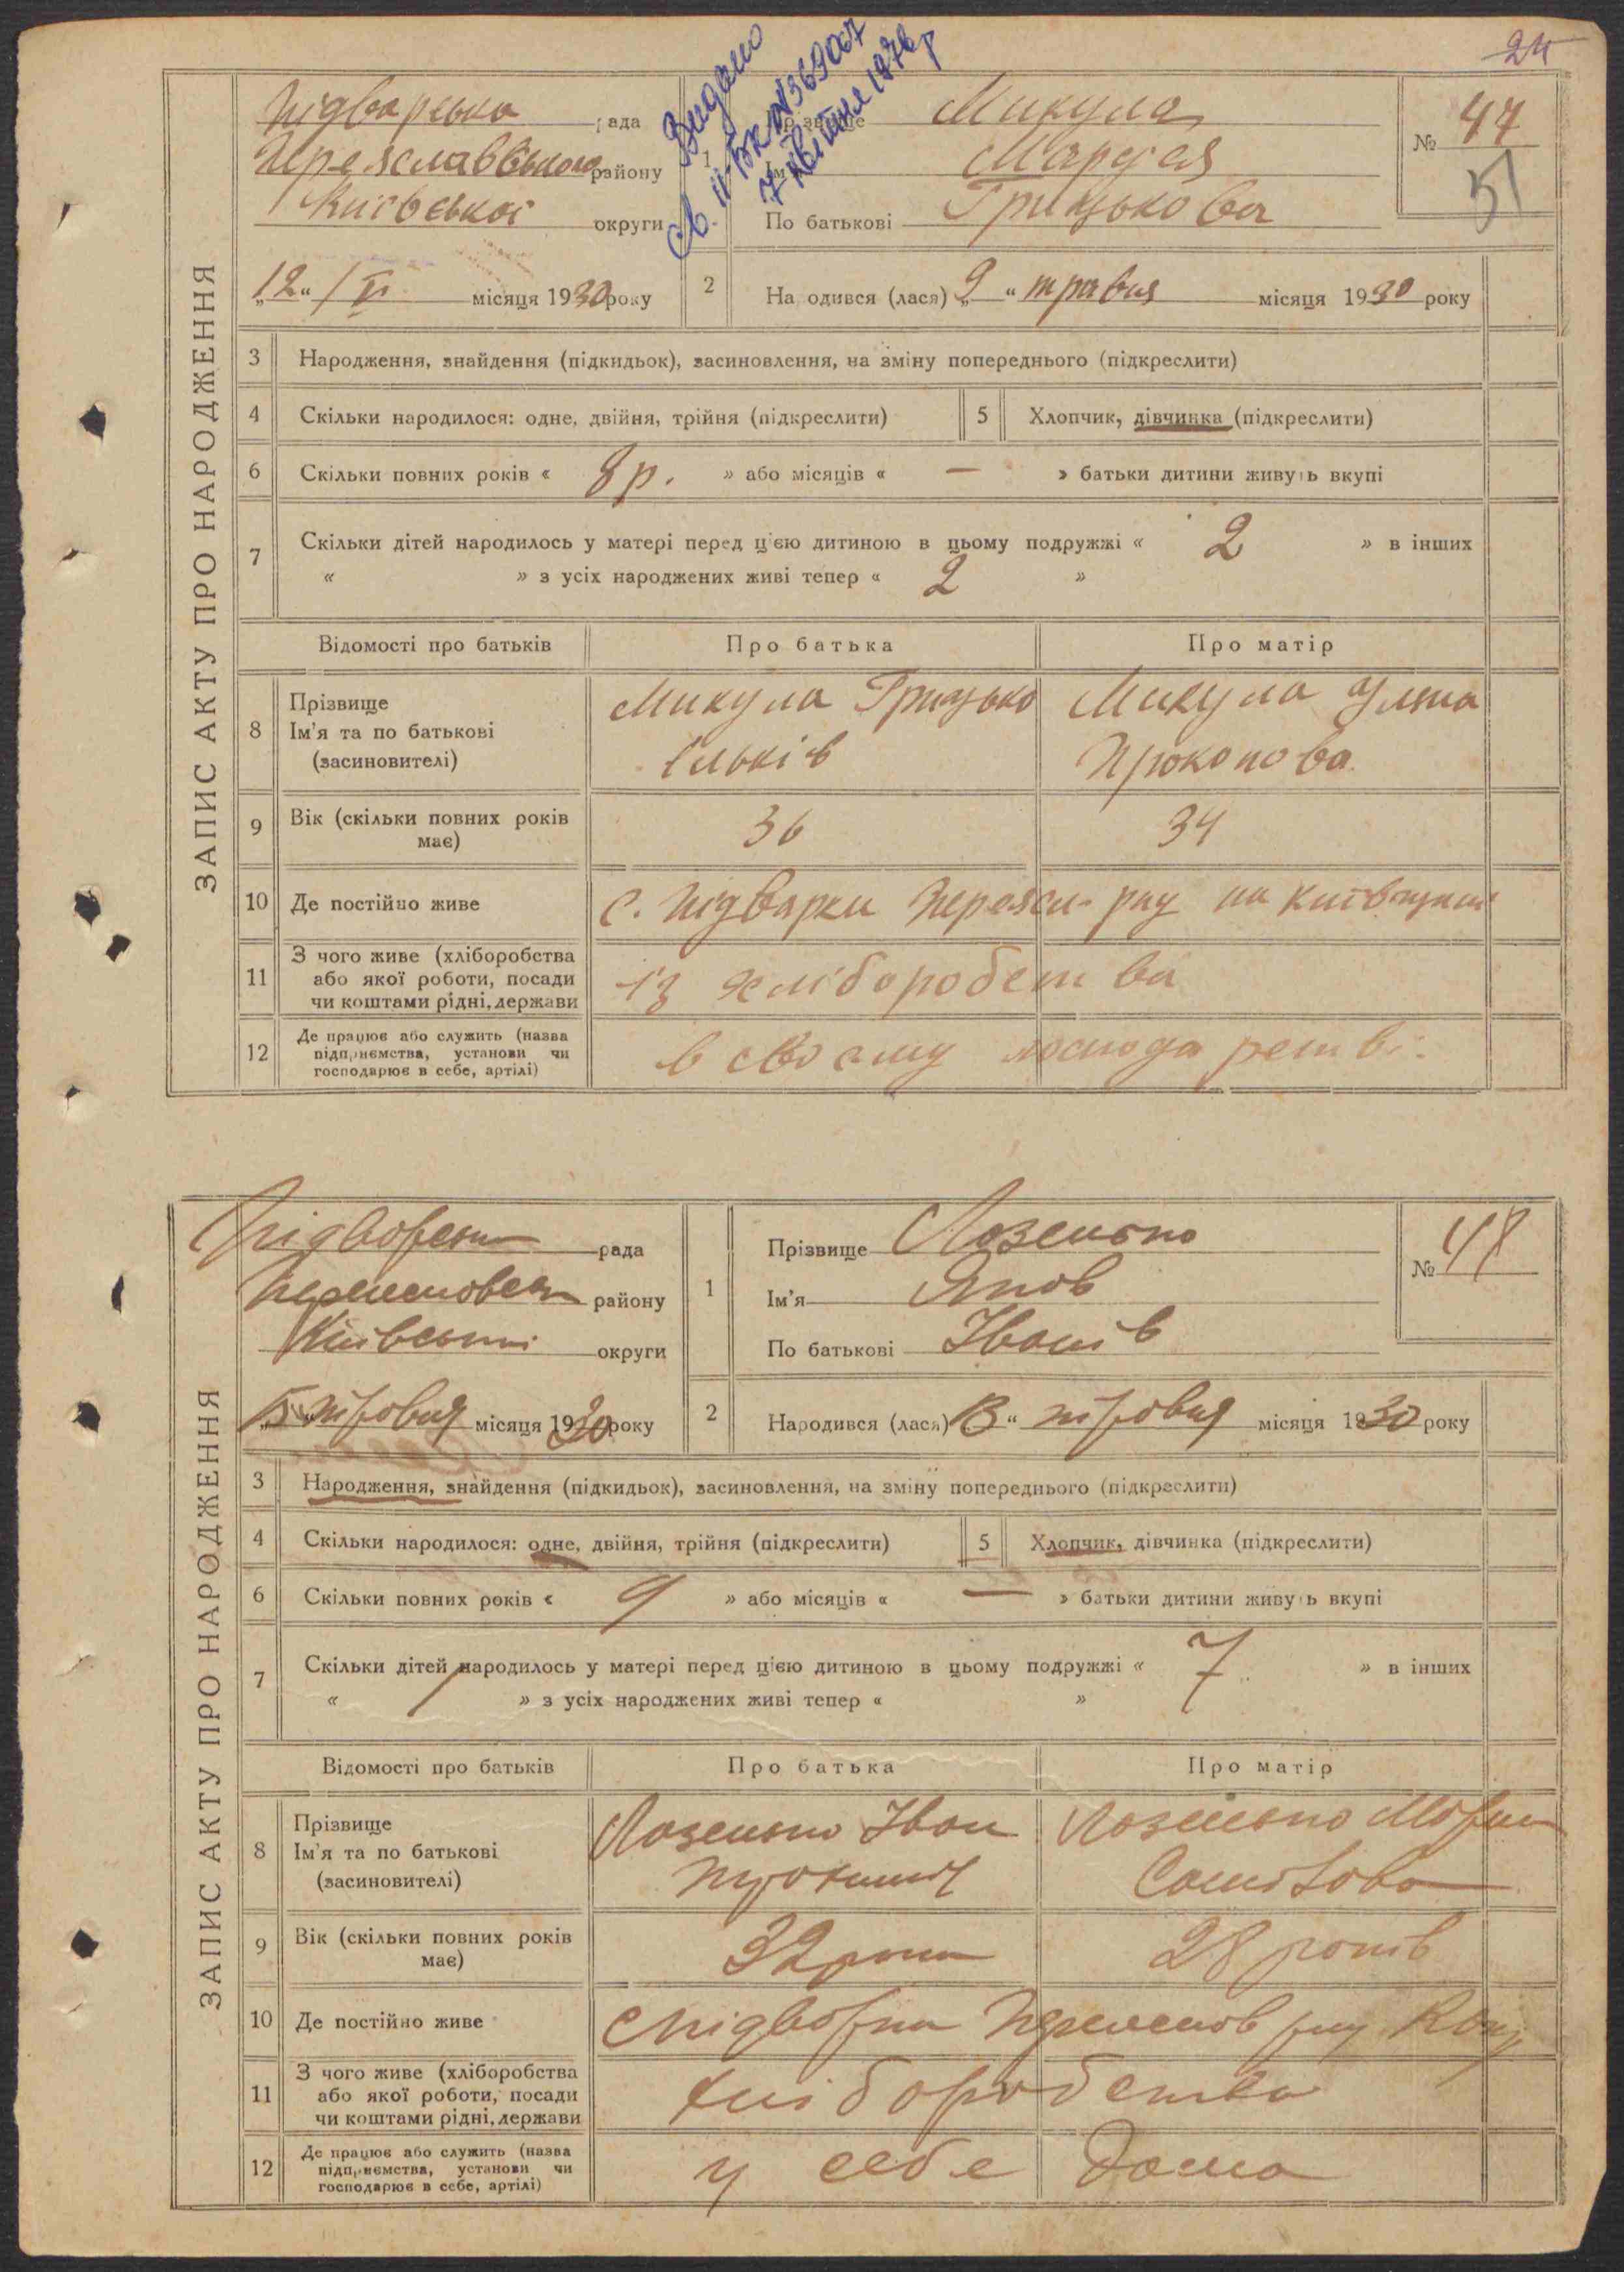 24
Видано
св. II-БК №369007
7 квітня 1976 р
ЗАПИС АКТУ ПРО НАРОДЖЕННЯ
Підварська рада
Переяславського району
Київської округи
1
Прізвище Микула
Ім'я Маруся
По батькові Грицькова
№ 47
51
„12“ /VI місяця 1930 року
2 Народився (лася) „2“ травня місяця 1930 року
3 Народження, знайдення (підкидьок), засиновлення, на зміну попереднього (підкреслити)
4 Скільки народилося: одне, двійня, трійня (підкреслити) 5 Хлопчик, дівчинка (підкреслити)
6 Скільки повних років « 8 р. » або місяців « — » батьки дитини живуть вкупі
7 Скільки дітей народилось у матері перед цією дитиною в цьому подружжі « 2 » в інших
« » з усіх народжених живі тепер « 2 »
Відомості про батьків Про батька Про матір
8 Прізвище Ім'я та по батькові (засиновителі)
Микула Грицько Ільків
Микула Уляна Прокопова
9 Вік (скільки повних років має) 36 34
10 Де постійно живе с. Підварки Переясл- р-ну на Київщині
11 З чого живе (хліборобства або якої роботи, посади чи коштами рідні, держави із хліборобства
12 Де працює або служить (назва підприємства, установи чи господарює в себе, артілі) в своєму господарстві.
ЗАПИС АКТУ ПРО НАРОДЖЕННЯ
Підворська рада
Переяславськ району
Київської округи
1
Прізвище Лозенько
Ім'я Яков
По батькові Іванів
№ 48
„15“ травня місяця 1930 року
2 Народився (лася) „13“ травня місяця 1930 року
3 Народження, знайдення (підкидьок), засиновлення, на зміну попереднього (підкреслити)
4 Скільки народилося: одне, двійня, трійня (підкреслити) 5 Хлопчик, дівчинка (підкреслити)
6 Скільки повних років « 9 » або місяців « — » батьки дитини живуть вкупі
7 Скільки дітей народилось у матері перед цією дитиною в цьому подружжі « 7 » в інших
« / » з усіх народжених живі тепер « »
Відомості про батьків Про батька Про матір
8 Прізвище Ім'я та по батькові (засиновителі)
Лозенько Іван
Лозенько
9 Вік (скільки повних років має) 32 роки 28 років
10 Де постійно живе с Підворки Переяслов р-ну
11 З чого живе (хліборобства або якої роботи, посади чи коштами рідні, держави хліборобства
12 Де працює або служить (назва підприємства, установи чи господарює в себе, артілі) у себе дома